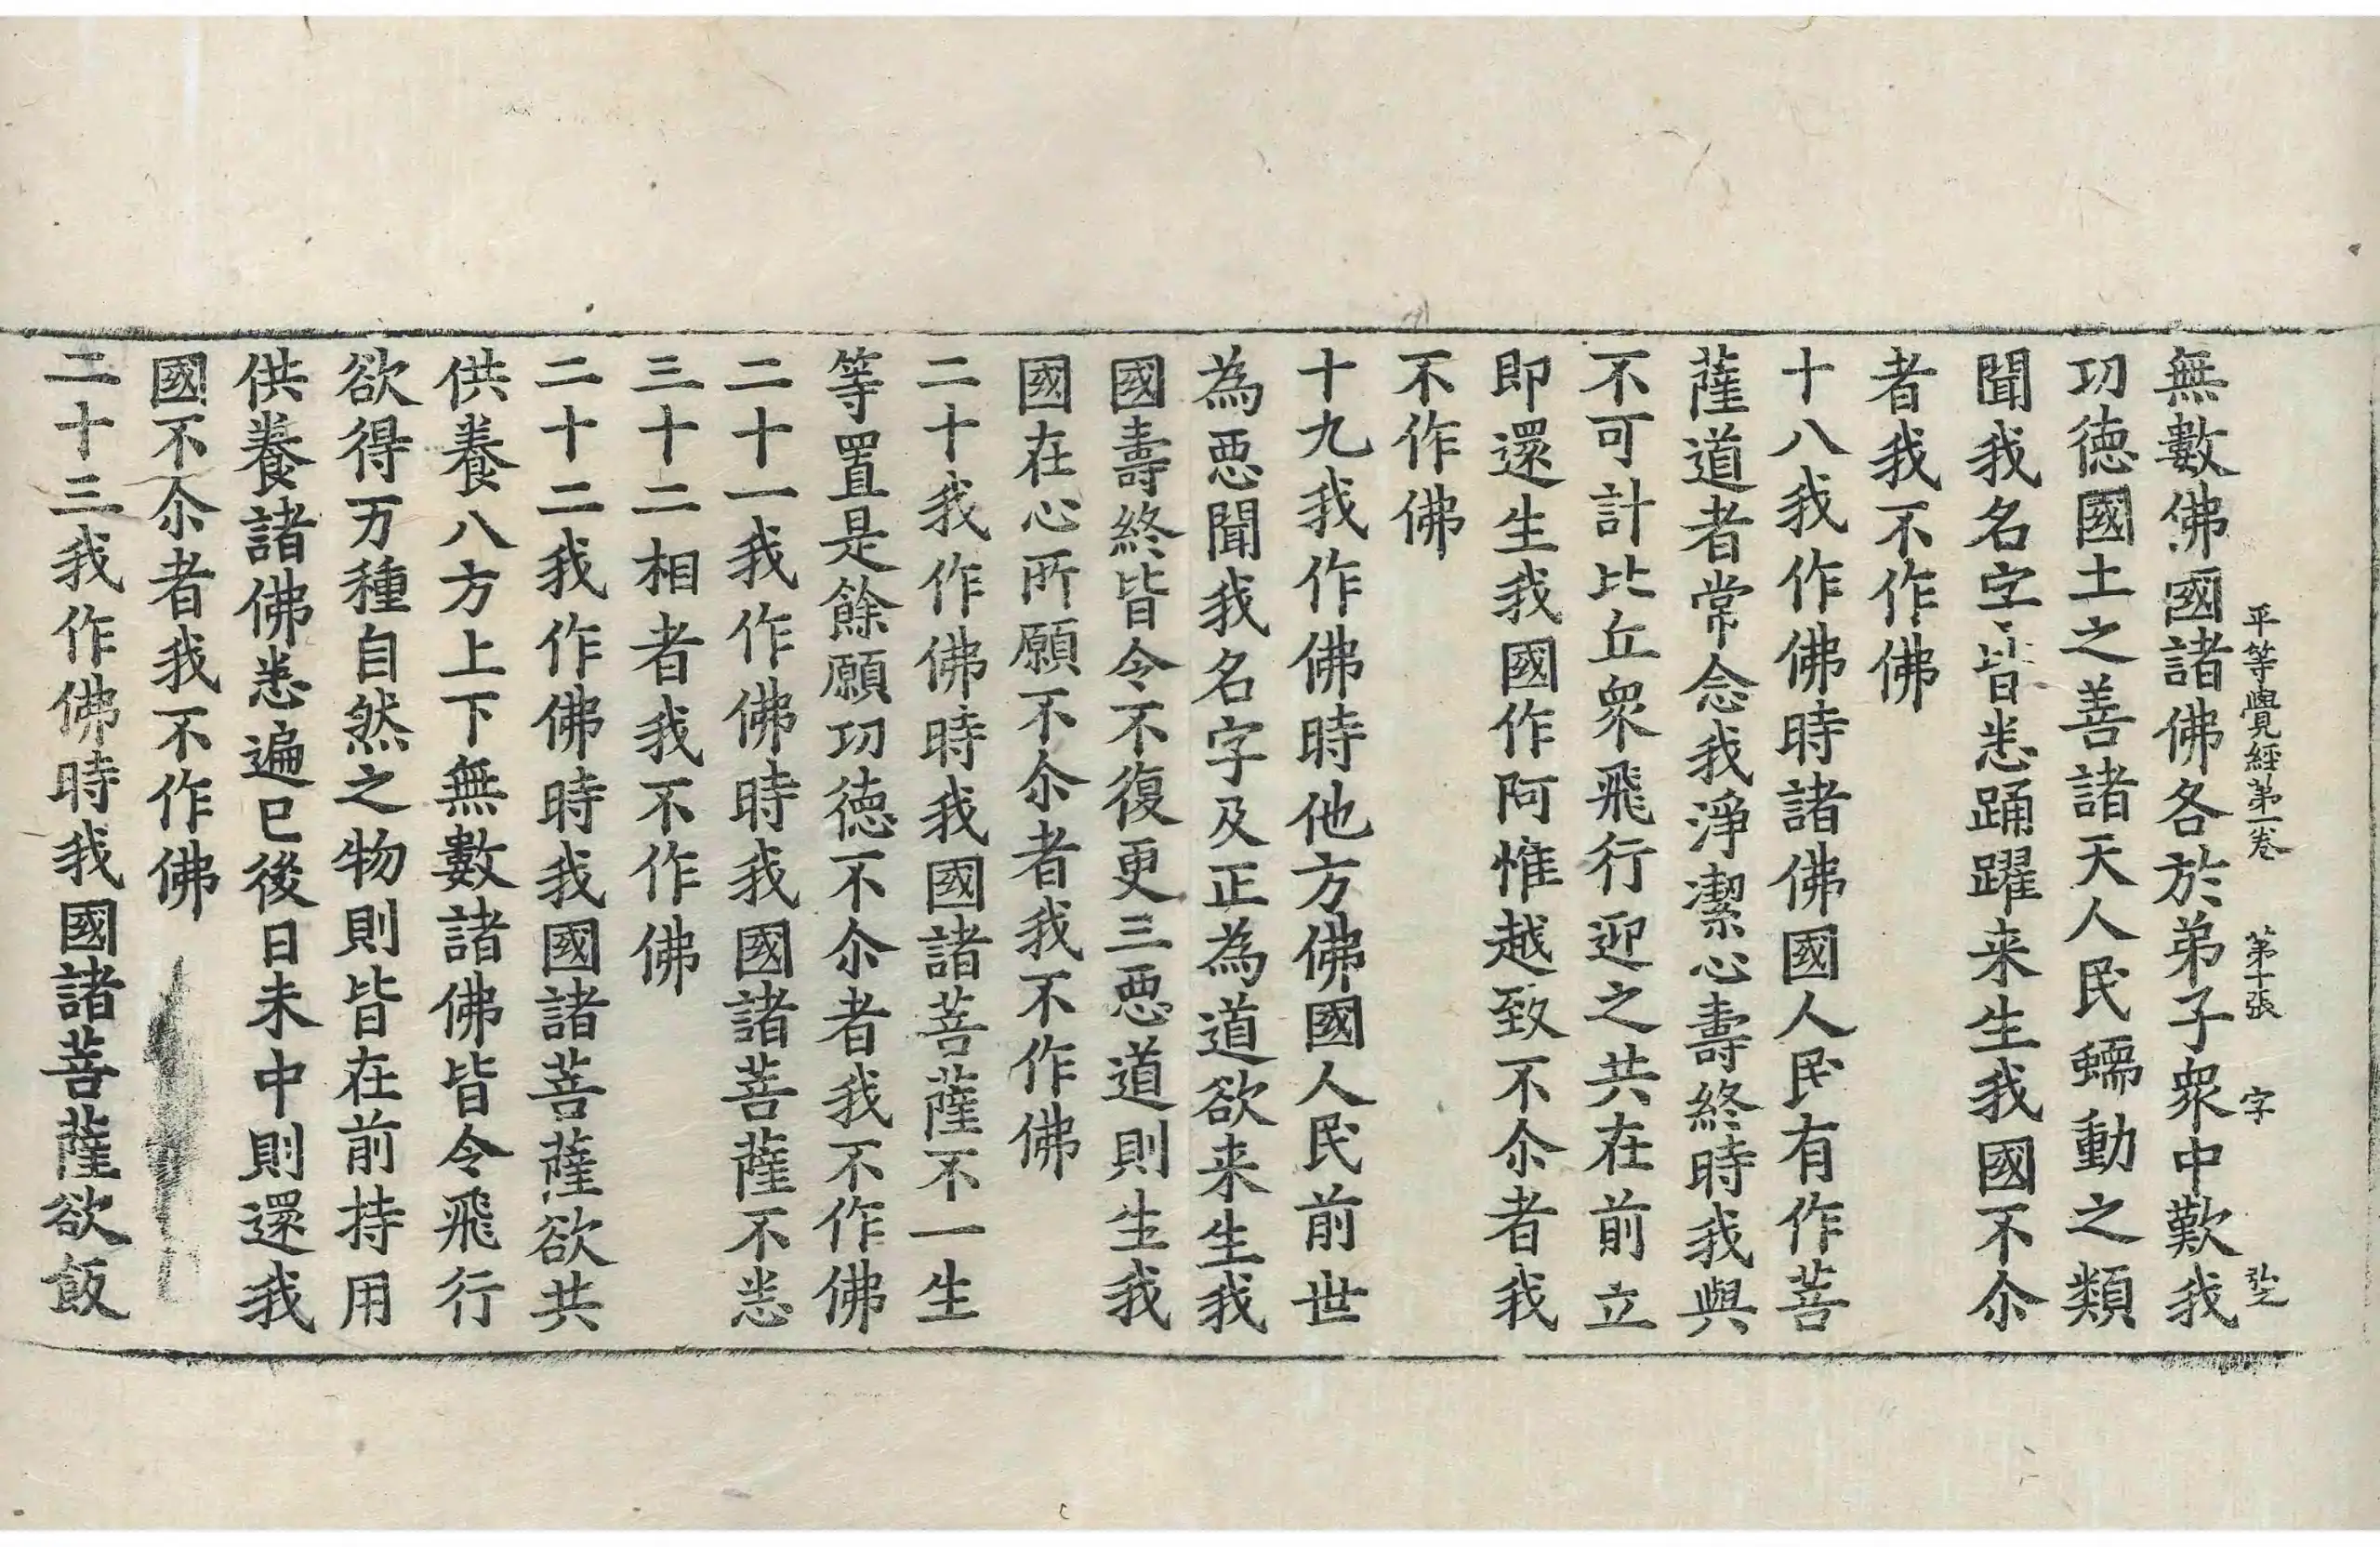 平等覺經第一卷 第十張 字 弘之
無數佛國諸佛各於弟子衆中歎我
功德國土之善諸天人民蠕動之類
聞我名字皆悉踊躍来生我國不尒
者我不作佛
十八我作佛時諸佛國人民有作菩
薩道者常念我淨潔心壽終時我與
不可計比丘衆飛行迎之共在前立
即還生我國作阿惟越致不尒者我
不作佛
十九我作佛時他方佛國人民前世
為悪聞我名字及正為道欲来生我
國壽終皆令不復更三悪道則生我
國在心所願不尒者我不作佛
二十我作佛時我國諸菩薩不一生
等置是餘願功德不尒者我不作佛
二十一我作佛時我國諸菩薩不悉
三十二相者我不作佛
二十二我作佛時我國諸菩薩欲共
供養八方上下無數諸佛皆令飛行
欲得万種自然之物則皆在前持用
供養諸佛悉遍已後日未中則還我
國不尒者我不作佛
二十三我作佛時我國諸菩薩欲飯